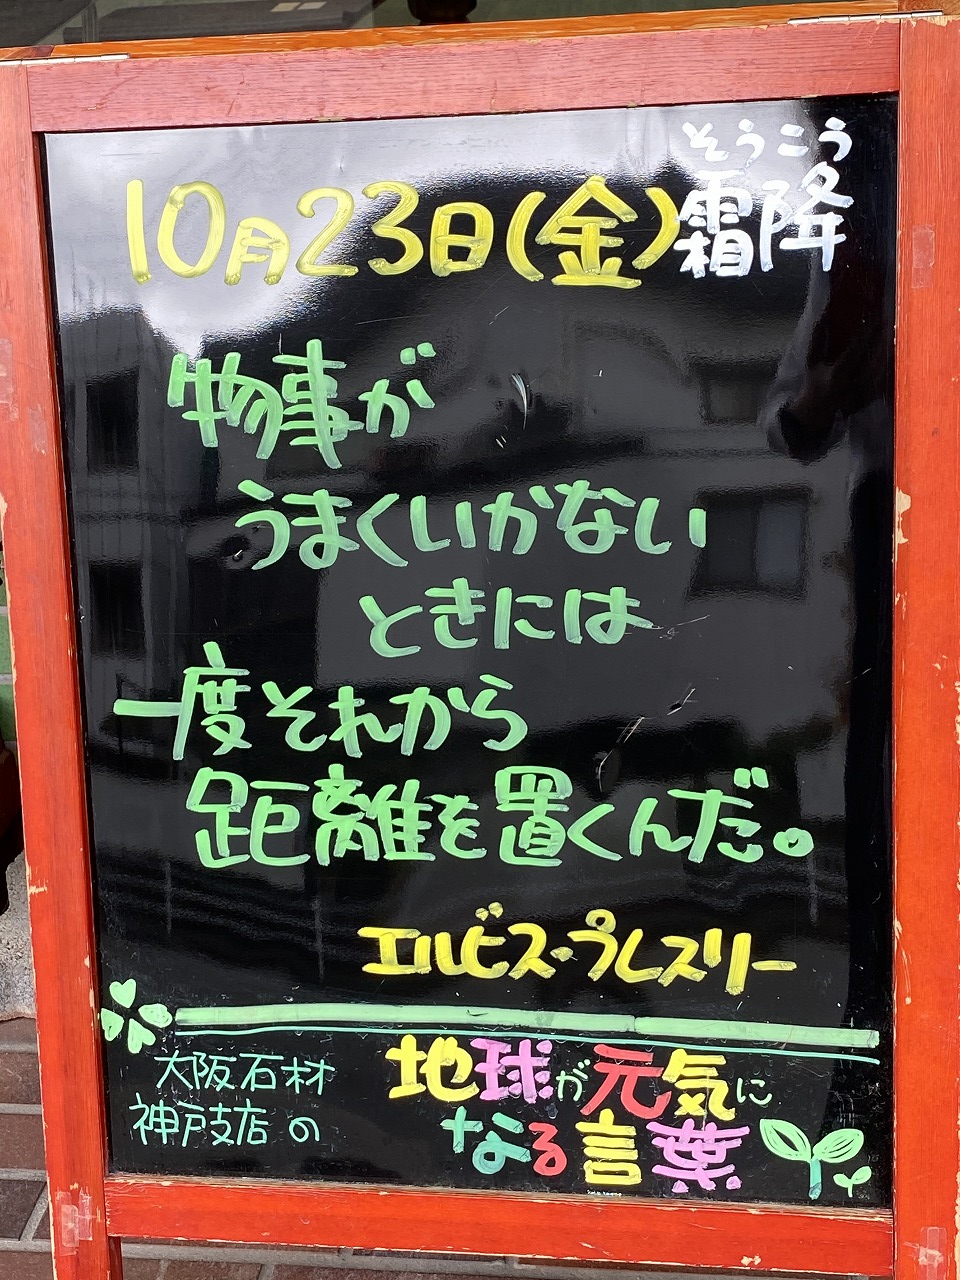 そうこう
10月23日(金)霜降
物事が
うまくいかない
ときには
一度それから
距離を置くんだ。
エルビス・プレスリー
大阪石材
神戸支店の
地球が元気に
なる言葉